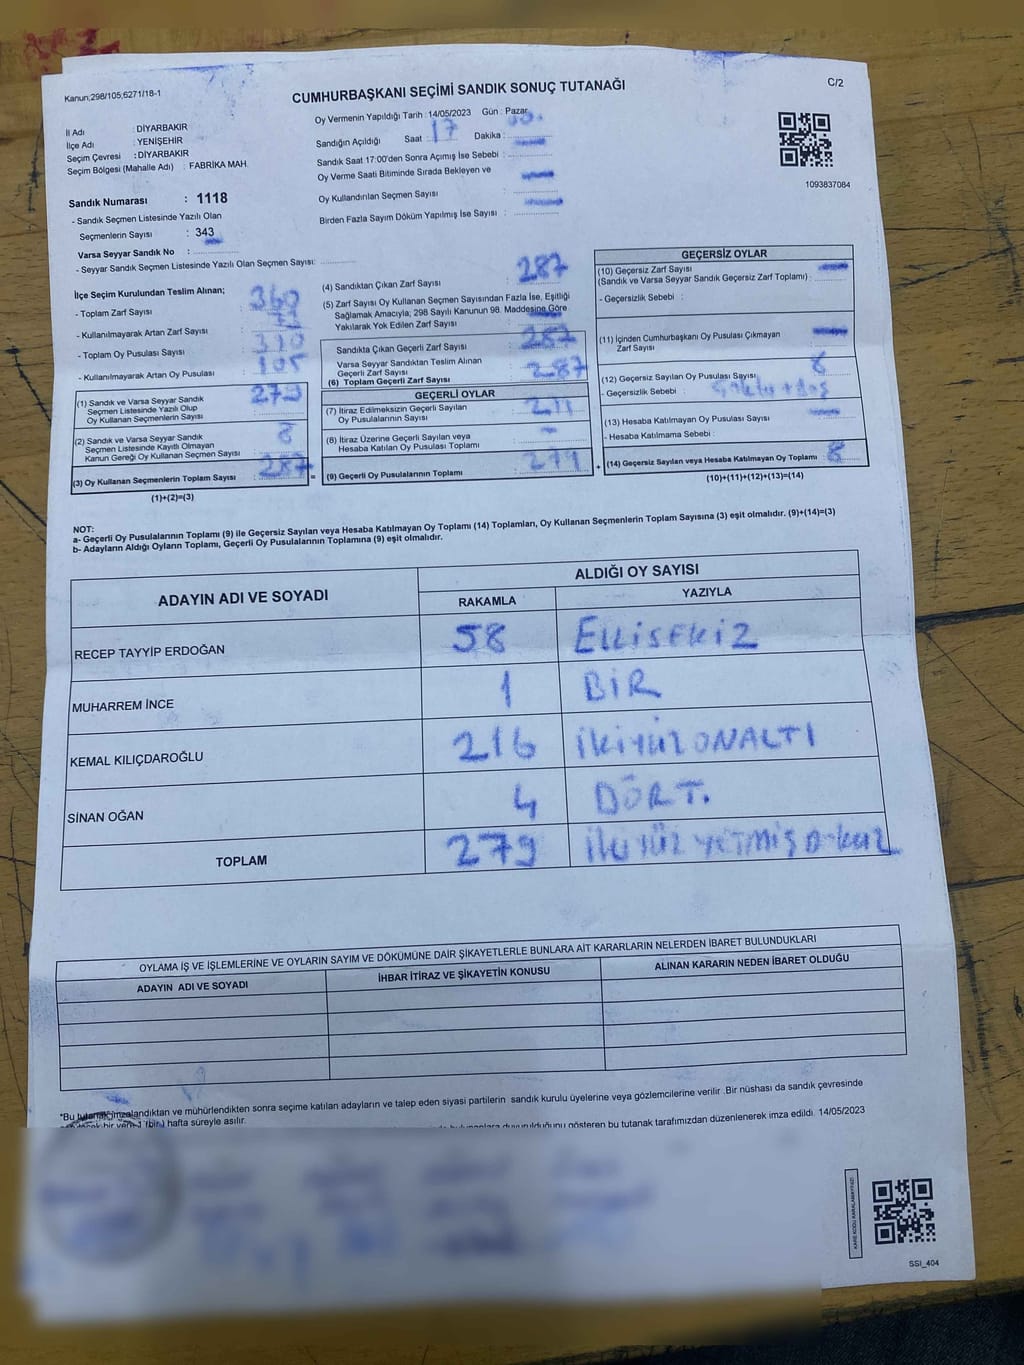 Kanun;298/105;6271/18-1
CUMHURBAŞKANI SEÇİMİ SANDIK SONUÇ TUTANAĞI
C/2
İl Adı : DİYARBAKIR
İlçe Adı : YENİŞEHİR
Seçim Çevresi : DİYARBAKIR
Seçim Bölgesi (Mahalle Adı) : FABRİKA MAH.
Oy Vermenin Yapıldığı Tarih : 14/05/2023 Gün : Pazar
Sandığın Açıldığı Saat : 17 Dakika :
Sandık Saat 17:00'den Sonra Açımış İse Sebebi :
Oy Verme Saati Bitiminde Sırada Bekleyen ve
Oy Kullandırılan Seçmen Sayısı :
Birden Fazla Sayım Döküm Yapılmış İse Sayısı :
1093837084
Sandık Numarası : 1118
- Sandık Seçmen Listesinde Yazılı Olan
Seçmenlerin Sayısı : 343
Varsa Seyyar Sandık No :
- Seyyar Sandık Seçmen Listesinde Yazılı Olan Seçmen Sayısı:
İlçe Seçim Kurulundan Teslim Alınan;
- Toplam Zarf Sayısı : 360
- Kullanılmayarak Artan Zarf Sayısı :
- Toplam Oy Pusulası Sayısı :
- Kullanılmayarak Artan Oy Pusulası : 105
(1) Sandık ve Varsa Seyyar Sandık
Seçmen Listesinde Yazılı Olup
Oy Kullanan Seçmenlerin Sayısı : 279
(2) Sandık ve Varsa Seyyar Sandık
Seçmen Listesinde Kayıtlı Olmayan
Kanun Gereği Oy Kullanan Seçmen Sayısı : 8
(3) Oy Kullanan Seçmenlerin Toplam Sayısı : 287
(1)+(2)=(3)
(4) Sandıktan Çıkan Zarf Sayısı : 287
(5) Zarf Sayısı Oy Kullanan Seçmen Sayısından Fazla İse, Eşitliği
Sağlamak Amacıyla, 298 Sayılı Kanunun 98. Maddesine Göre
Yakılarak Yok Edilen Zarf Sayısı :
Sandıkta Çıkan Geçerli Zarf Sayısı : 287
Varsa Seyyar Sandıktan Teslim Alınan
Geçerli Zarf Sayısı :
(6) Toplam Geçerli Zarf Sayısı : 287
GEÇERLİ OYLAR
(7) İtiraz Edilmeksizin Geçerli Sayılan
Oy Pusulalarının Sayısı :
(8) İtiraz Üzerine Geçerli Sayılan veya
Hesaba Katılan Oy Pusulası Toplamı :
(9) Geçerli Oy Pusulalarının Toplamı : 279
GEÇERSİZ OYLAR
(10) Geçersiz Zarf Sayısı
(Sandık ve Varsa Seyyar Sandık Geçersiz Zarf Toplamı) :
- Geçersizlik Sebebi :
(11) İçinden Cumhurbaşkanı Oy Pusulası Çıkmayan
Zarf Sayısı :
(12) Geçersiz Sayılan Oy Pusulası Sayısı : 8
- Geçersizlik Sebebi :
(13) Hesaba Katılmayan Oy Pusulası Sayısı :
- Hesaba Katılmama Sebebi :
+ (14) Geçersiz Sayılan veya Hesaba Katılmayan Oy Toplamı : 8
(10)+(11)+(12)+(13)=(14)
NOT:
a- Geçerli Oy Pusulalarının Toplamı (9) ile Geçersiz Sayılan veya Hesaba Katılmayan Oy Toplamı (14) Toplamları, Oy Kullanan Seçmenlerin Toplam Sayısına (3) eşit olmalıdır. (9)+(14)=(3)
b- Adayların Aldığı Oyların Toplamı, Geçerli Oy Pusulalarının Toplamına (9) eşit olmalıdır.
ADAYIN ADI VE SOYADI
ALDIĞI OY SAYISI
RAKAMLA YAZIYLA
RECEP TAYYİP ERDOĞAN 58 ELLİSEKİZ
MUHARREM İNCE 1 BİR
KEMAL KILIÇDAROĞLU 216 İKİYÜZONALTI
SİNAN OĞAN 4 DÖRT.
TOPLAM 279 İKİYÜZ YETMİŞ DOKUZ
OYLAMA İŞ VE İŞLEMLERİNE VE OYLARIN SAYIM VE DÖKÜMÜNE DAİR ŞİKAYETLERLE BUNLARA AİT KARARLARIN NELERDEN İBARET BULUNDUKLARI
ADAYIN ADI VE SOYADI İHBAR İTİRAZ VE ŞİKAYETİN KONUSU ALINAN KARARIN NEDEN İBARET OLDUĞU
*Bu tutanak imzalandıktan ve mühürlendikten sonra seçime katılan adayların ve talep eden siyasi partilerin sandık kurulu üyelerine veya gözlemcilerine verilir .Bir nüshası da sandık çevresinde
bir yere 1 (bir) hafta süreyle asılır.
duyurulduğunu gösteren bu tutanak tarafımızdan düzenlenerek imza edildi. 14/05/2023
SSI_404